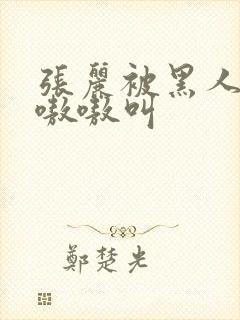 張麗被黑人
嗷嗷叫
鄭楚光